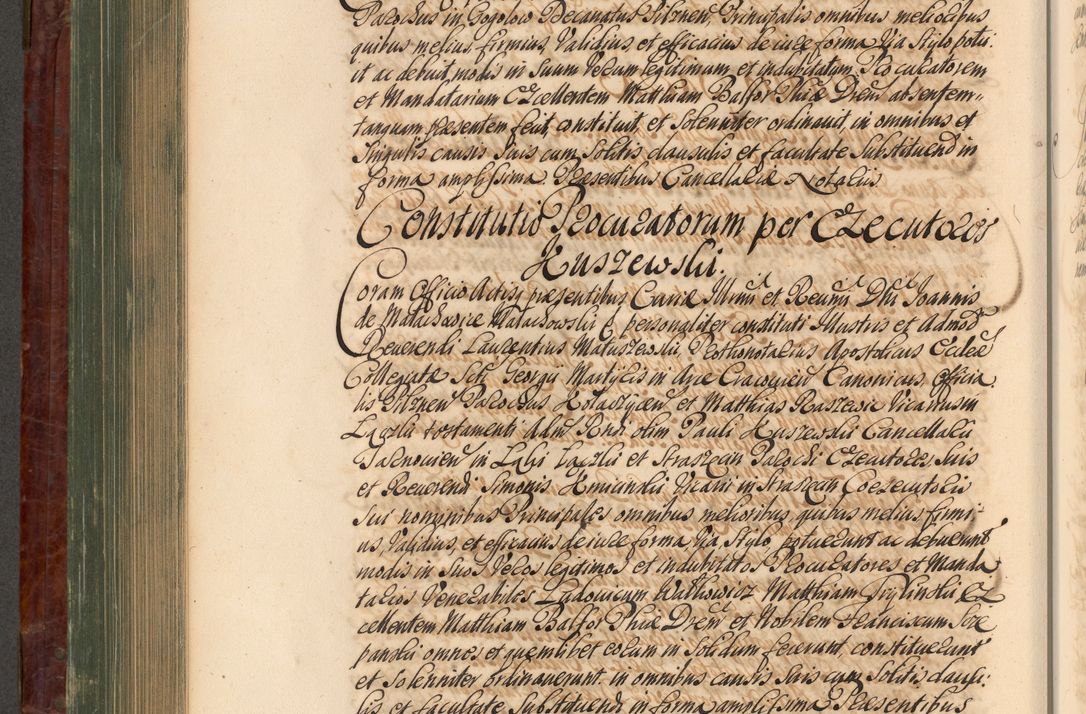 Parochus in Gogolow Decanatus Pilznen. Principalis omnibus melioribus
quibus melius, firmius, Validius, et efficacius de iure forma Via Stylo potu:
it ac debuit, modis in Suum Verum legitimum, et indubitatum, Procuratorem
et Mandatarium Excellentem Matthiam Balfor Phiæ Drem absentem
tanquam præsentem fecit, constituit, et Solenniter ordinavit, in omnibus et
Singulis causis Suis cum Solitis clausulis et facultate Substituend in
forma amplissima. Præsentibus Cancellariæ Notariis.
Constitutio Procuratorum per Executores
Kuszewskii.
Coram Officio Actisq præsentibus Curiæ Illmi et Reumi Dni Joannis
de Małachowice Małachowskii personaliter constituti Illustris et Admod
Reverendi Laurentius Matuszewskii, Prothonotarius Apostolicus Eccleæ
Collegiatæ Scti Georgii Martyris in Arce Cracovien Canonicus, Officia
lis Pilznen Parochus Kołaczycen et Matthias Raszewic Vicarius in
testamenti Adm Rndi olim Pauli Kuszewskii Cancellarii
Tarnovien in et Straszecin Parochi Executores, Suis
et Reverendi Simonis Vicarii in Straszecin Coexecutoris
Sui nominibus Principales omnibus melioribus quibus melius, firmi
us, Validius, et efficacius de iure forma, Via, Stylo, potuerunt ac debuerunt
modis in Suos Veros legitimos et indubitatos Procuratores et Manda
tarios Venerabiles Ludovicum Matthiam Ex
cellentem Matthiam Balfor Phiæ Drem et Nobilem Franciscum
omnes et quemlibet eorum in Solidum fecerunt constituerunt
et Solenniter ordinaverunt. in omnibus causis Suis cum Solitis clausu:
lis et facultate Substituendi in forma amplissima Præsentibus